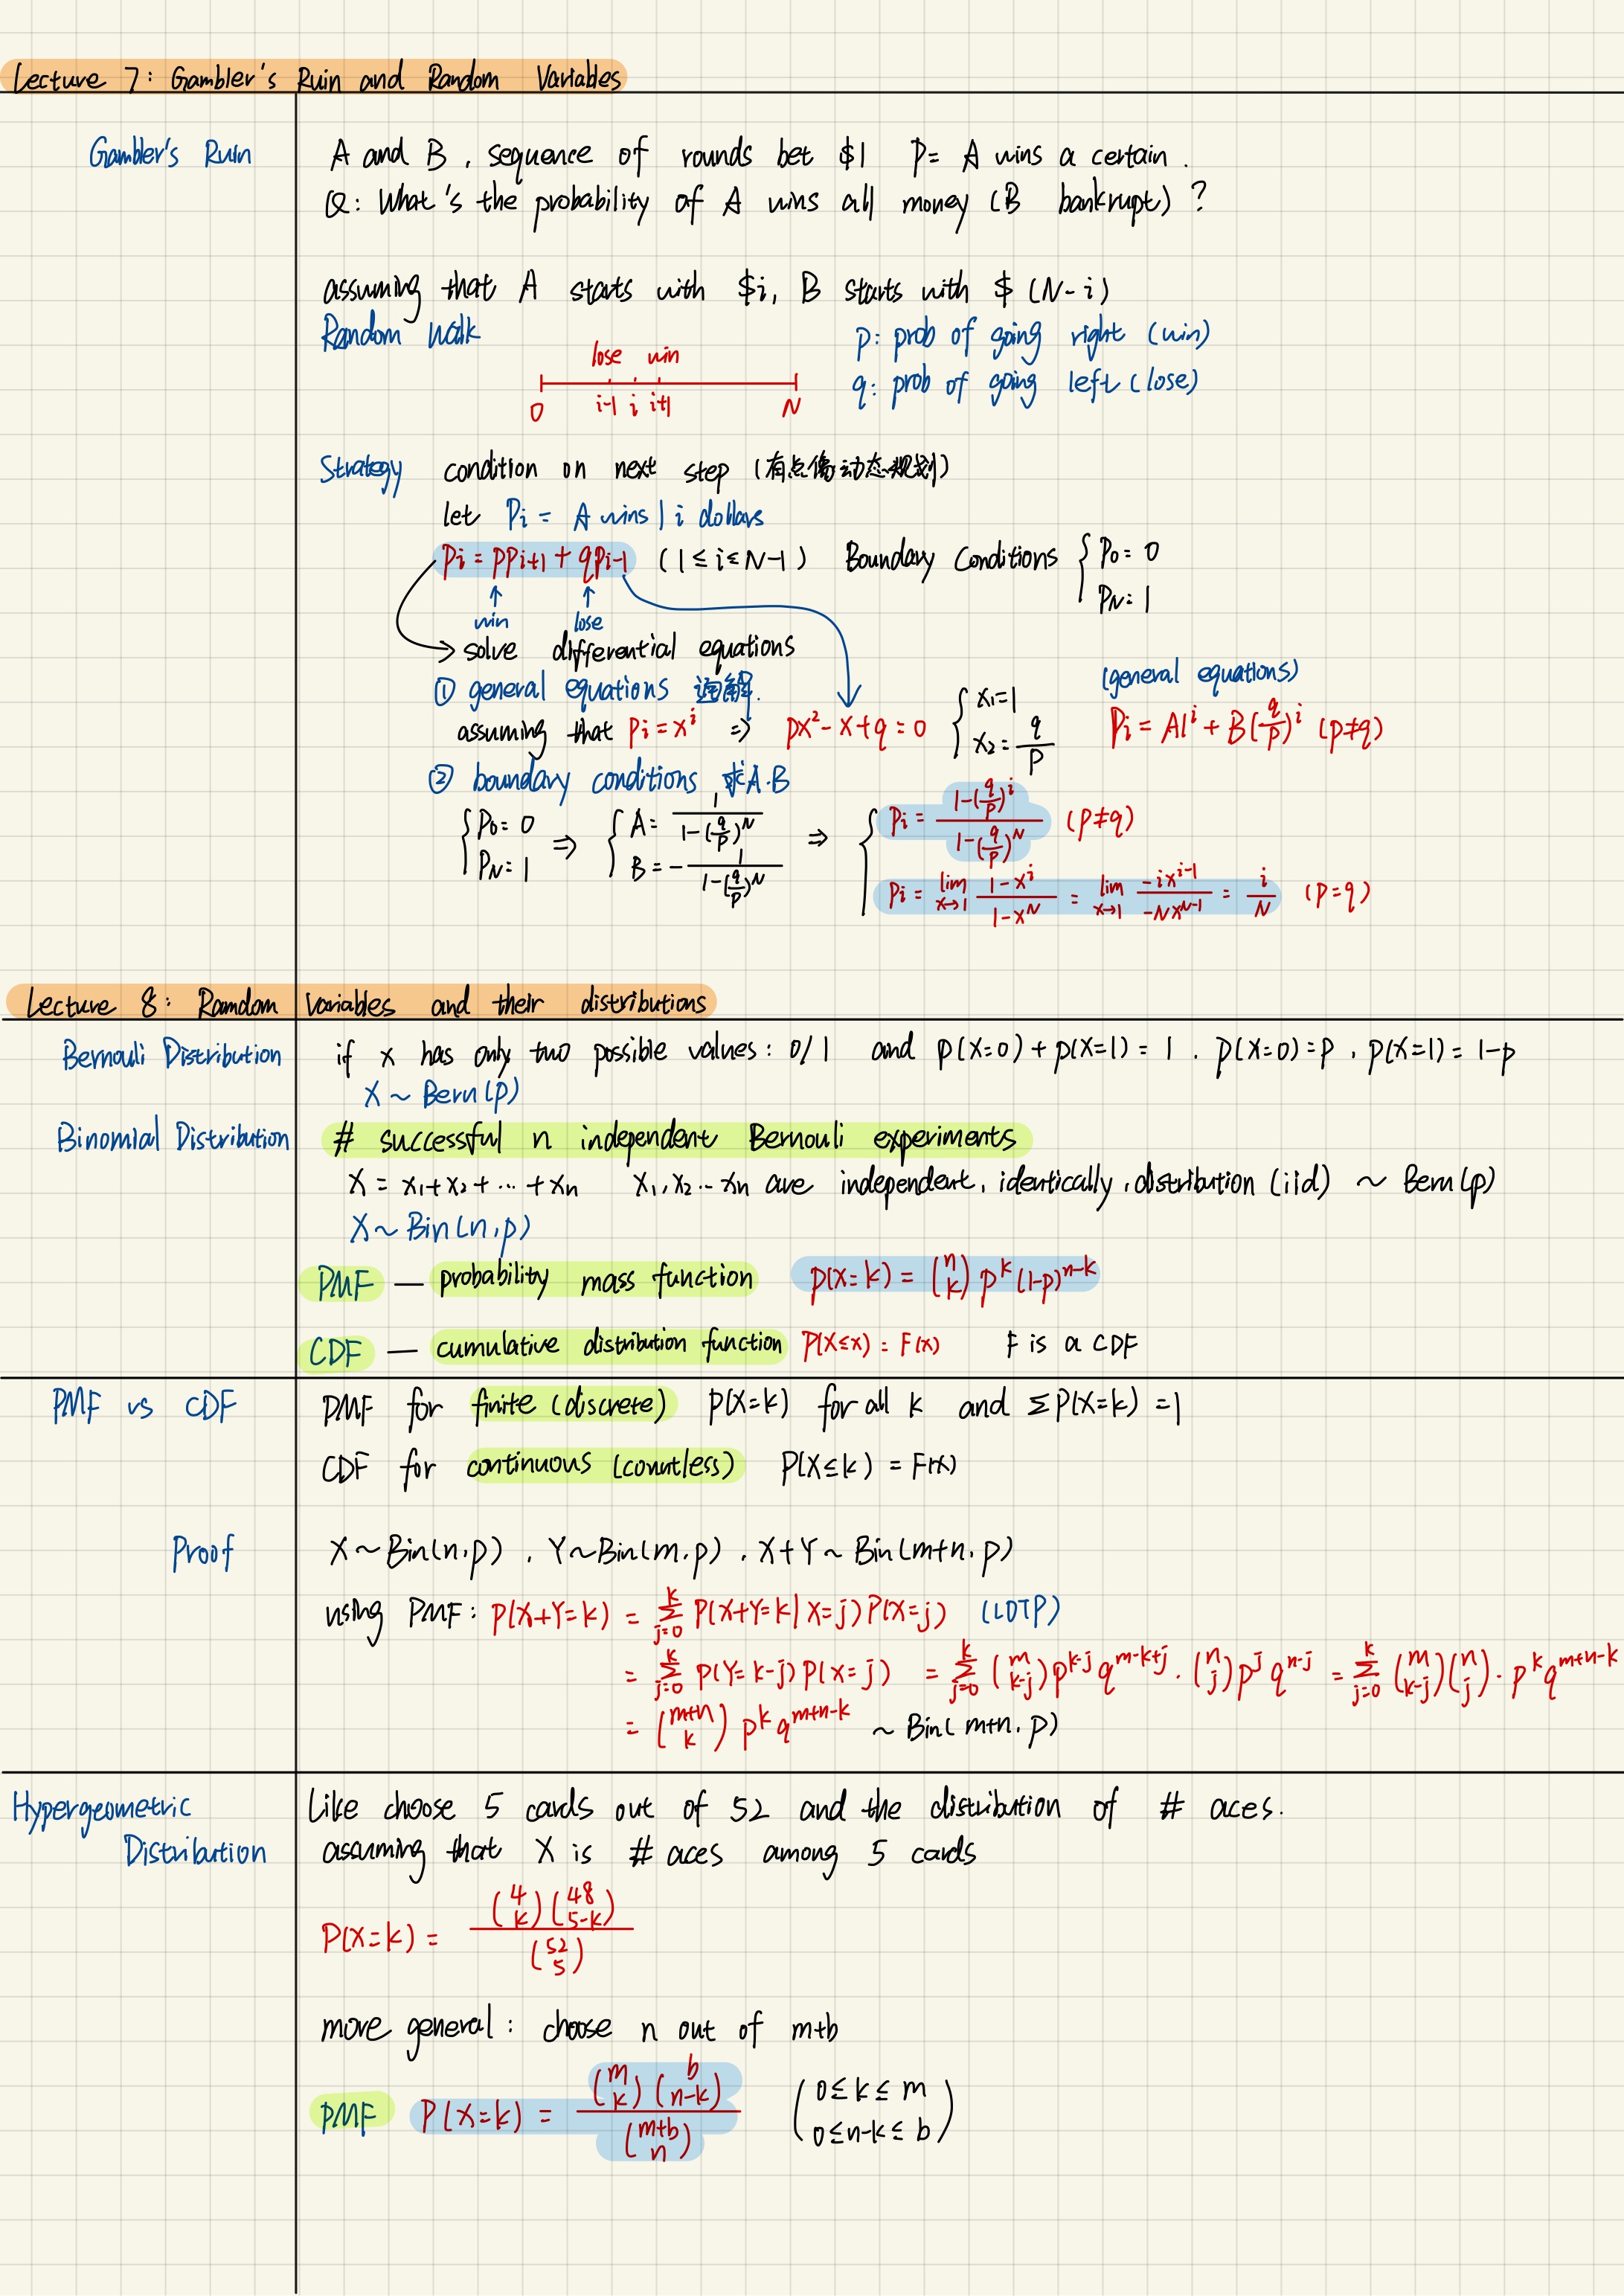 Lecture 7: Gambler's Ruin and Random Variables
Gambler's Ruin
A and B, sequence of rounds bet $1 P = A wins a certain.
Q: What's the probability of A wins all money (B bankrupt)?
assuming that A starts with $i, B starts with $(N-i)
Random Walk
p: prob of going right (win)
lose win
q: prob of going left (lose)
0 i-1 i i+1 N
Strategy condition on next step (有点像动态规划)
let Pi = A wins | i dollars
Pi = pPi+1 + qPi-1 (1 ≤ i ≤ N-1) Boundary Conditions { P0 = 0 PN = 1
↑ win ↑ lose
→ solve differential equations
① general equations 通解.
(general equations)
assuming that Pi = x^i ⇒ px² - x + q = 0 { x1 = 1 x2 = q/p Pi = A1^i + B(q/p)^i (p≠q)
② boundary conditions 求A.B
{ P0 = 0 PN = 1 ⇒ { A = 1/(1-(q/p)^N) B = -1/(1-(q/p)^N) ⇒ { Pi = (1-(q/p)^i)/(1-(q/p)^N) (p≠q)
Pi = lim x→1 (1-x^i)/(1-x^N) = lim x→1 (-ix^(i-1))/(-Nx^(N-1)) = i/N (p=q)
Lecture 8: Ramdom Variables and their distributions
Bernouli Distribution if x has only two possible values: 0/1 and p(X=0) + p(X=1) = 1. p(X=0) = p, p(X=1) = 1-p
X ~ Bern(p)
Binomial Distribution # successful n independent Bernouli experiments
X = x1+x2+...+xn x1, x2 ... xn are independent, identically, distribution (iid) ~ Bern(p)
X ~ Bin(n,p)
PMF — probability mass function p(X=k) = (n k) p^k (1-p)^(n-k)
CDF — cumulative distribution function P(X≤x) = F(x) F is a CDF
PMF vs CDF PMF for finite (discrete) P(X=k) for all k and ΣP(X=k) = 1
CDF for continuous (conutless) P(X≤k) = F(x)
Proof X ~ Bin(n,p), Y ~ Bin(m,p), X+Y ~ Bin(m+n,p)
using PMF: P(X+Y=k) = Σ_{j=0}^{k} P(X+Y=k|X=j)P(X=j) (LOTP)
= Σ_{j=0}^{k} P(Y=k-j)P(X=j) = Σ_{j=0}^{k} (m k-j)p^(k-j) q^(m-k+j) · (n j)p^j q^(n-j) = Σ_{j=0}^{k} (m k-j)(n j) · p^k q^(m+n-k)
= (m+n k) p^k q^(m+n-k) ~ Bin(m+n, p)
Hypergeometric Like choose 5 cards out of 52 and the distribution of # aces.
Distribution assuming that X is # aces among 5 cards
P(X=k) = (4 k)(48 5-k) / (52 5)
more general: choose n out of m+b
PMF P(X=k) = (m k)(b n-k) / (m+b n) (0≤k≤m 0≤n-k≤b)